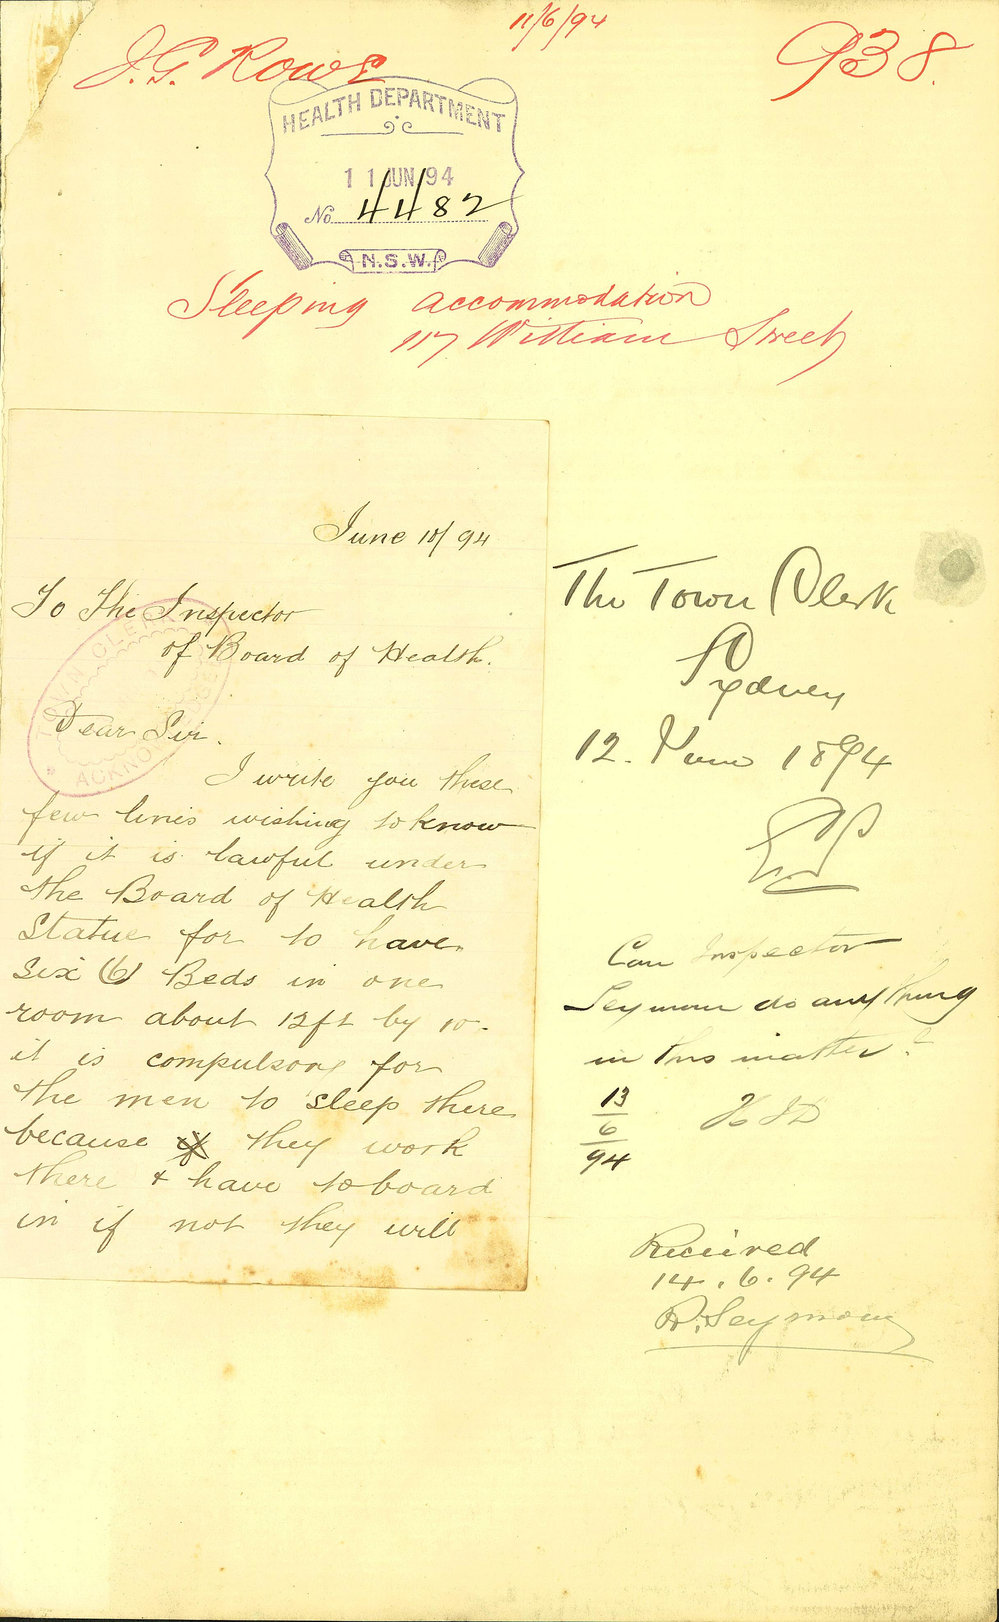 11/6/94
J. G. Rowe
938.
HEALTH DEPARTMENT
11 JUN 94
No 4482
N.S.W.
Sleeping accommodation
117 William Street
June 10/94
To The Inspector
of Board of Health.
TOWN CLERK
ACKNO
Dear Sir.
I write you these
few lines wishing to know
if it is lawful under
the Board of Health
Statue for to have
six (6) Beds in one
room about 12ft by 10-
it is compulsory for
the men to sleep there
because if they work
there & have to board
in if not they will
The Town Clerk
Sydney
12. June 1894
Can Inspector
Seymour do anything
in this matter?
13
6
94
Received
14.6.94
R. Seymour